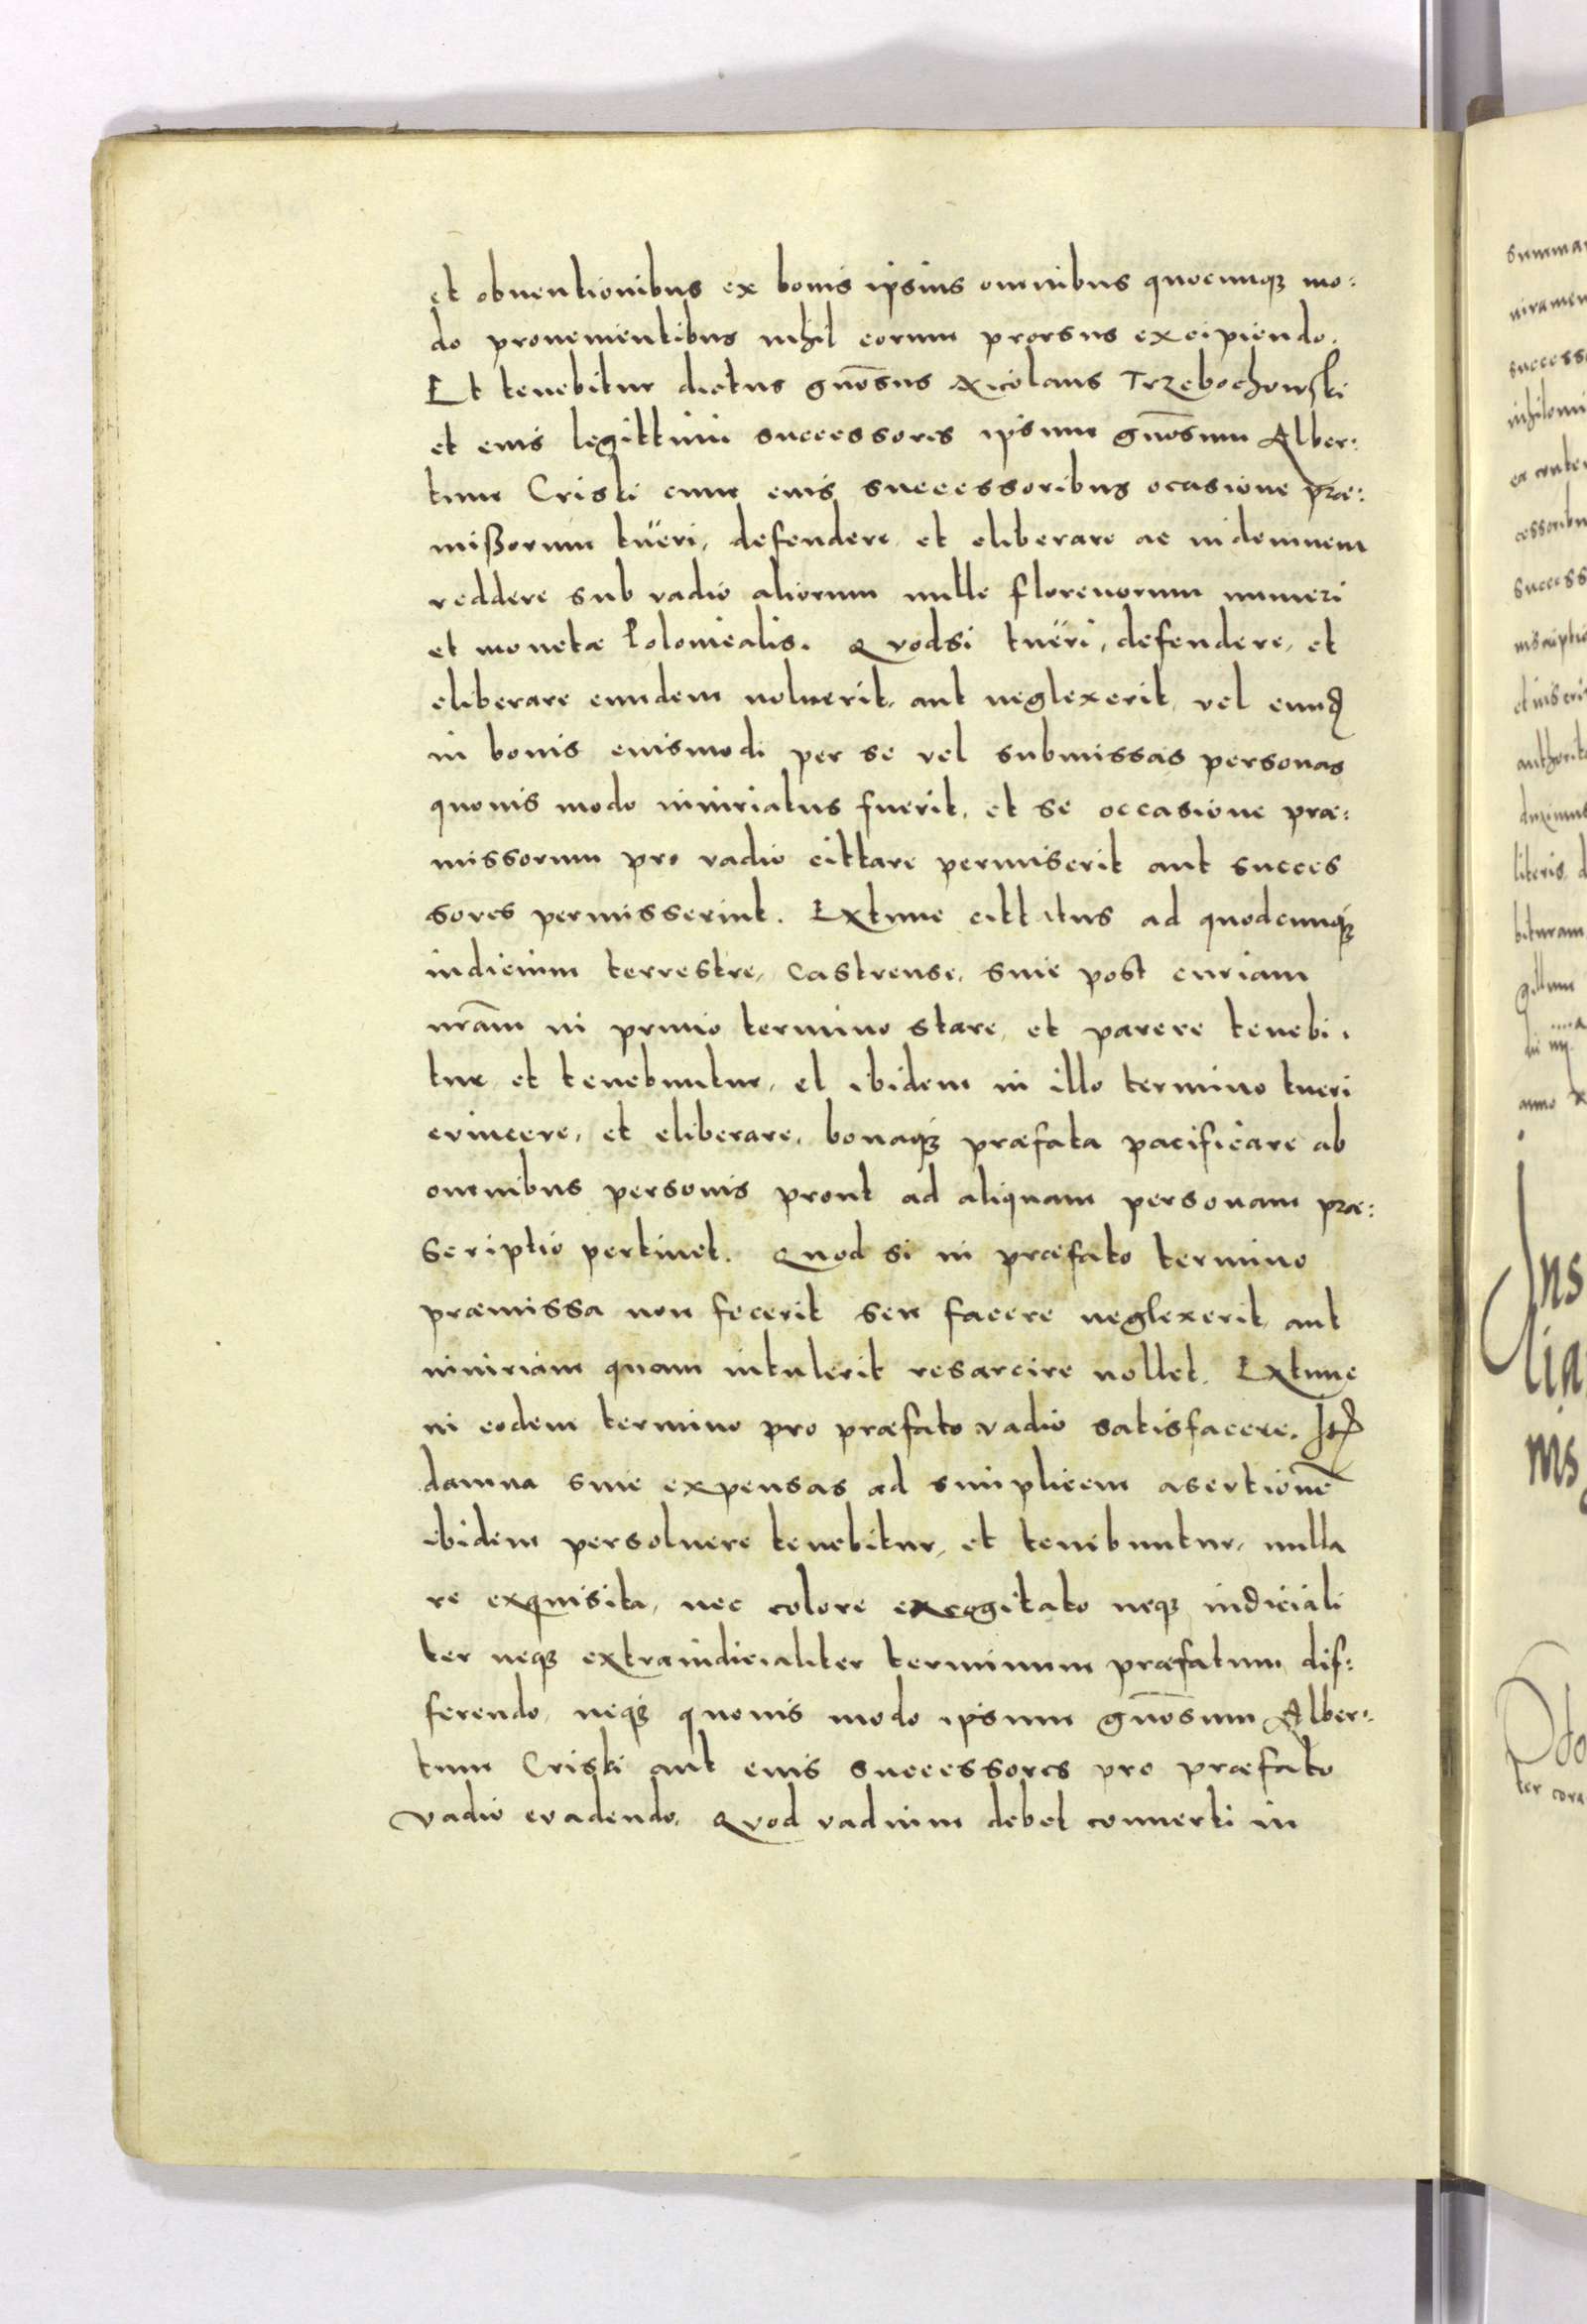 et obuentionibus ex bonis ipsius omnibus quocunqꝫ mo:
do prouenientibus nihil eorum prorsus excipiendo.
Et tenebitur dictus gnōsus Nicolaus Trzebochowski
et eius legittimi successores ipsum gnōsum Alber:
tum Criski cum eius successoribus ocasione præ:
mißorum tüeri, defendere et eliberare ac indemnem
reddere sub vadio aliorum mille florenorum numeri
et monetæ Polonicalis. Qvodsi tuëri, defendere, et
eliberare eundem noluerit, aut neglexerit, vel eund
in bonis eiusmodi per se vel submissas personas
quouis modo iniuriatus fuerit, et se occasione præ:
missorum pro vadio cittare permiserit aut succes
sores permisserint. Extunc cittatus ad quodcunqꝫ
iudicium terrestre, Castrense, siue post curiam
nr̄am in primo termino stare, et parere tenebi,
tur et tenebuntur, et ibidem in illo termino tueri
evincere, et eliberare, bonaqꝫ præfata pacificare ab
omnibus personis prout ad aliquam personam præ:
scriptio pertinet. Quod si in præfato termino
præmissa non fecerit seu facere neglexerit, aut
iniuriam quam intulerit resarcire nollet. Extunc
in eodem termino pro præfato vadio satisfacere. Itꝫ
damna siue expensas ad simplicem asertionē
ibidem persoluere tenebitur, et tenebuntur, nulla
re exquisita, nec colore excogitato neqꝫ iudiciali
ter neqꝫ extraiudicialiter terminum præfatum dif:
ferendo, neqꝫ quouis modo ipsum gnōsum Alber:
tum Criski aut eius successores pro præfato
vadio evadendo. Qvod vadium debet conuerti in
summa
successo
cessoribu
success
duximus
literis, d
bituram
gillum
anno
Ins
lia
ms
ter cora